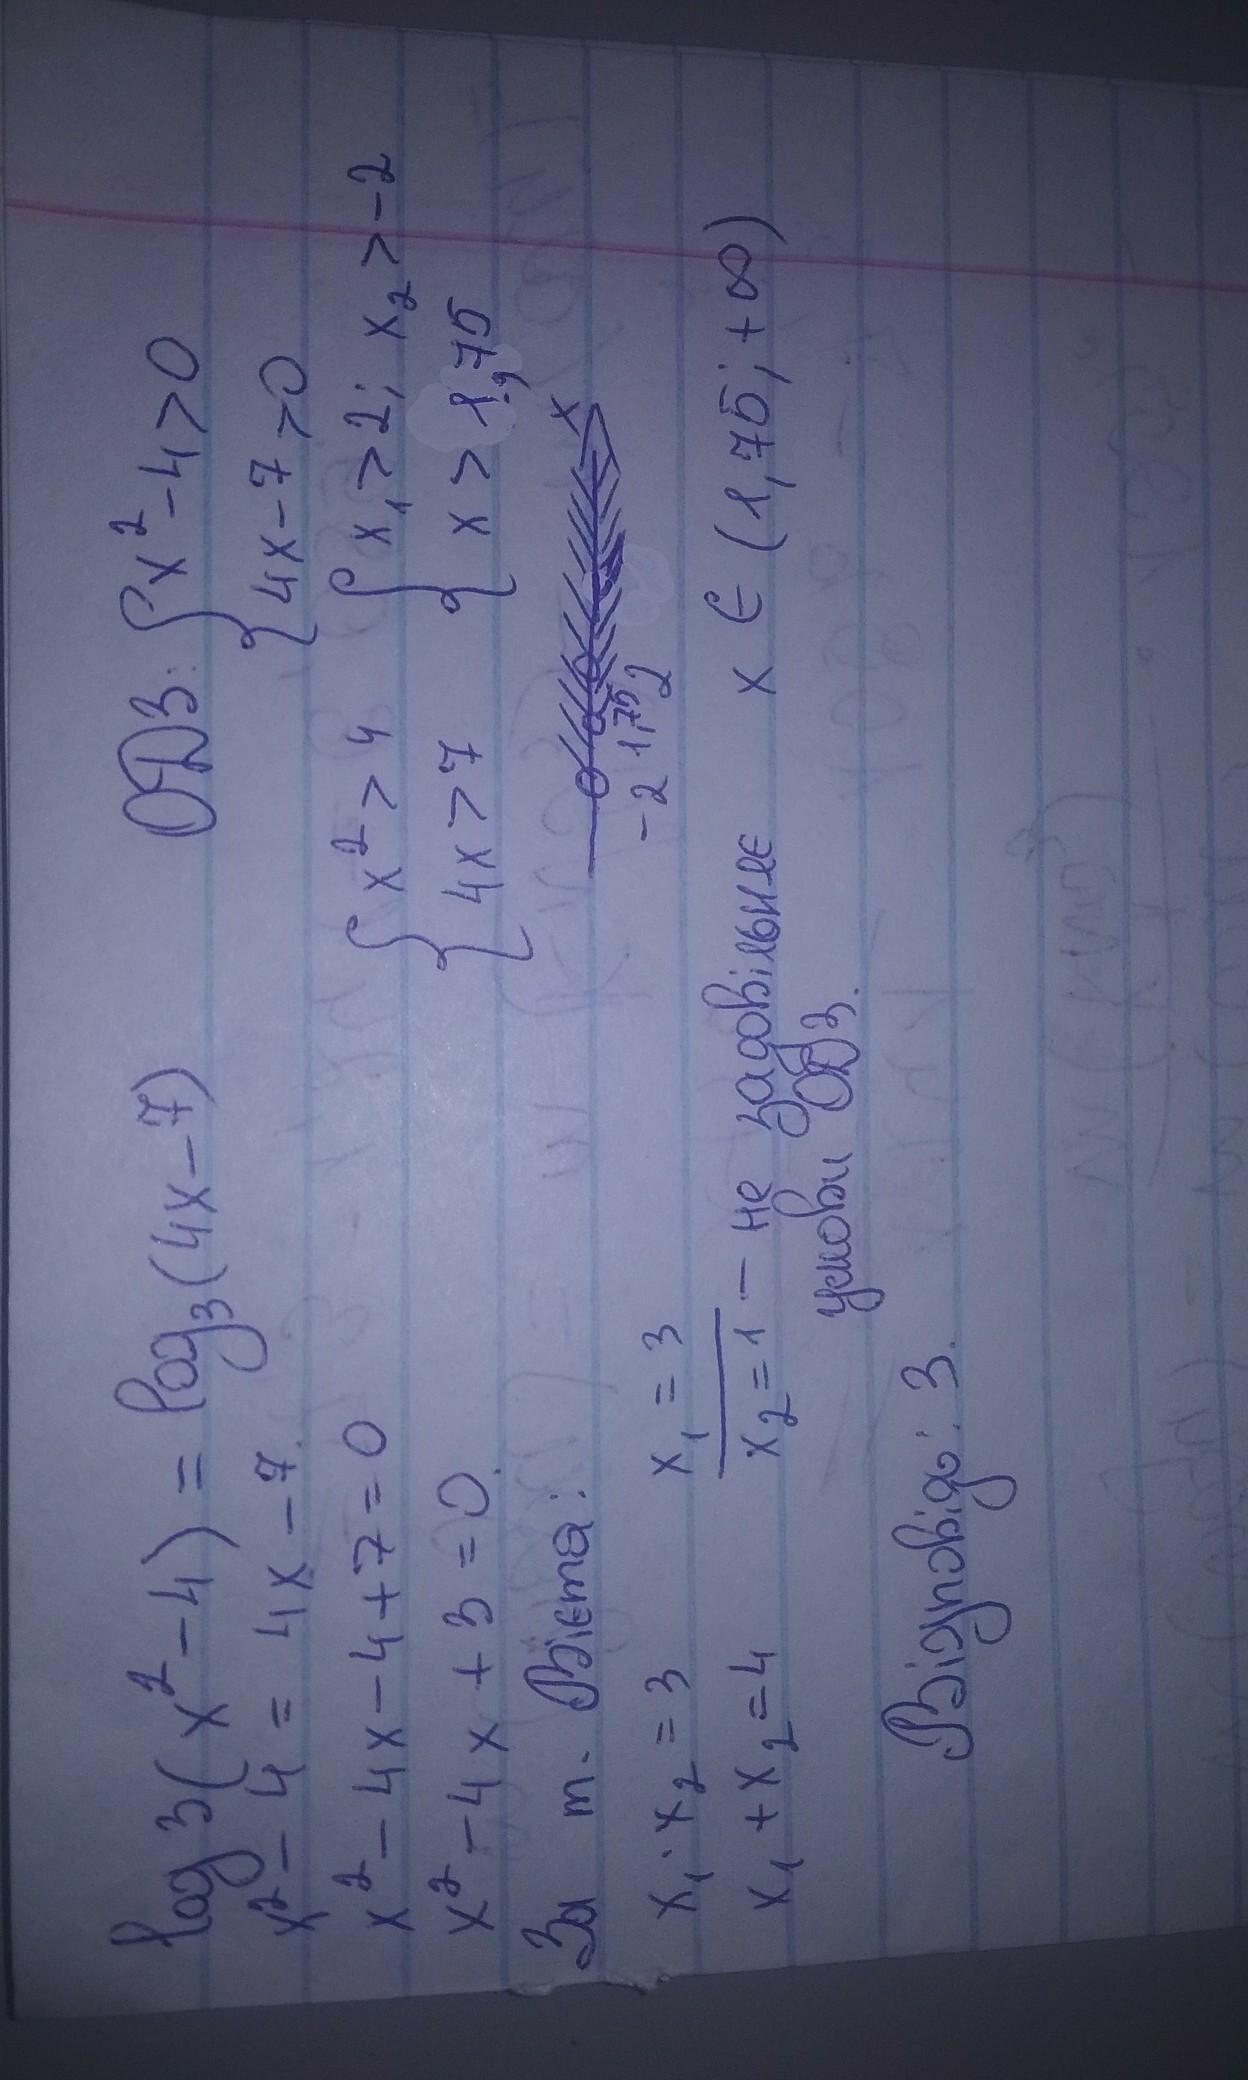 log3(x² - 4) = log₃(4x - 7)
x² - 4 = 4x - 7.
x² - 4x - 4 + 7 = 0
x² - 4x + 3 = 0.
За т. Вієта:
x₁ · x₂ = 3 x₁ = 3
x₁ + x₂ = 4 x₂ = 1 - не задовільняє
умови ОДЗ.
Відповідь: 3.
ОДЗ: { x² - 4 > 0
4x - 7 > 0
{ x² > 4 { x₁ > 2; x₂ > -2
4x > 7 x > 1,75
x
-2 1,75 2
x ∈ (1,75; +∞)